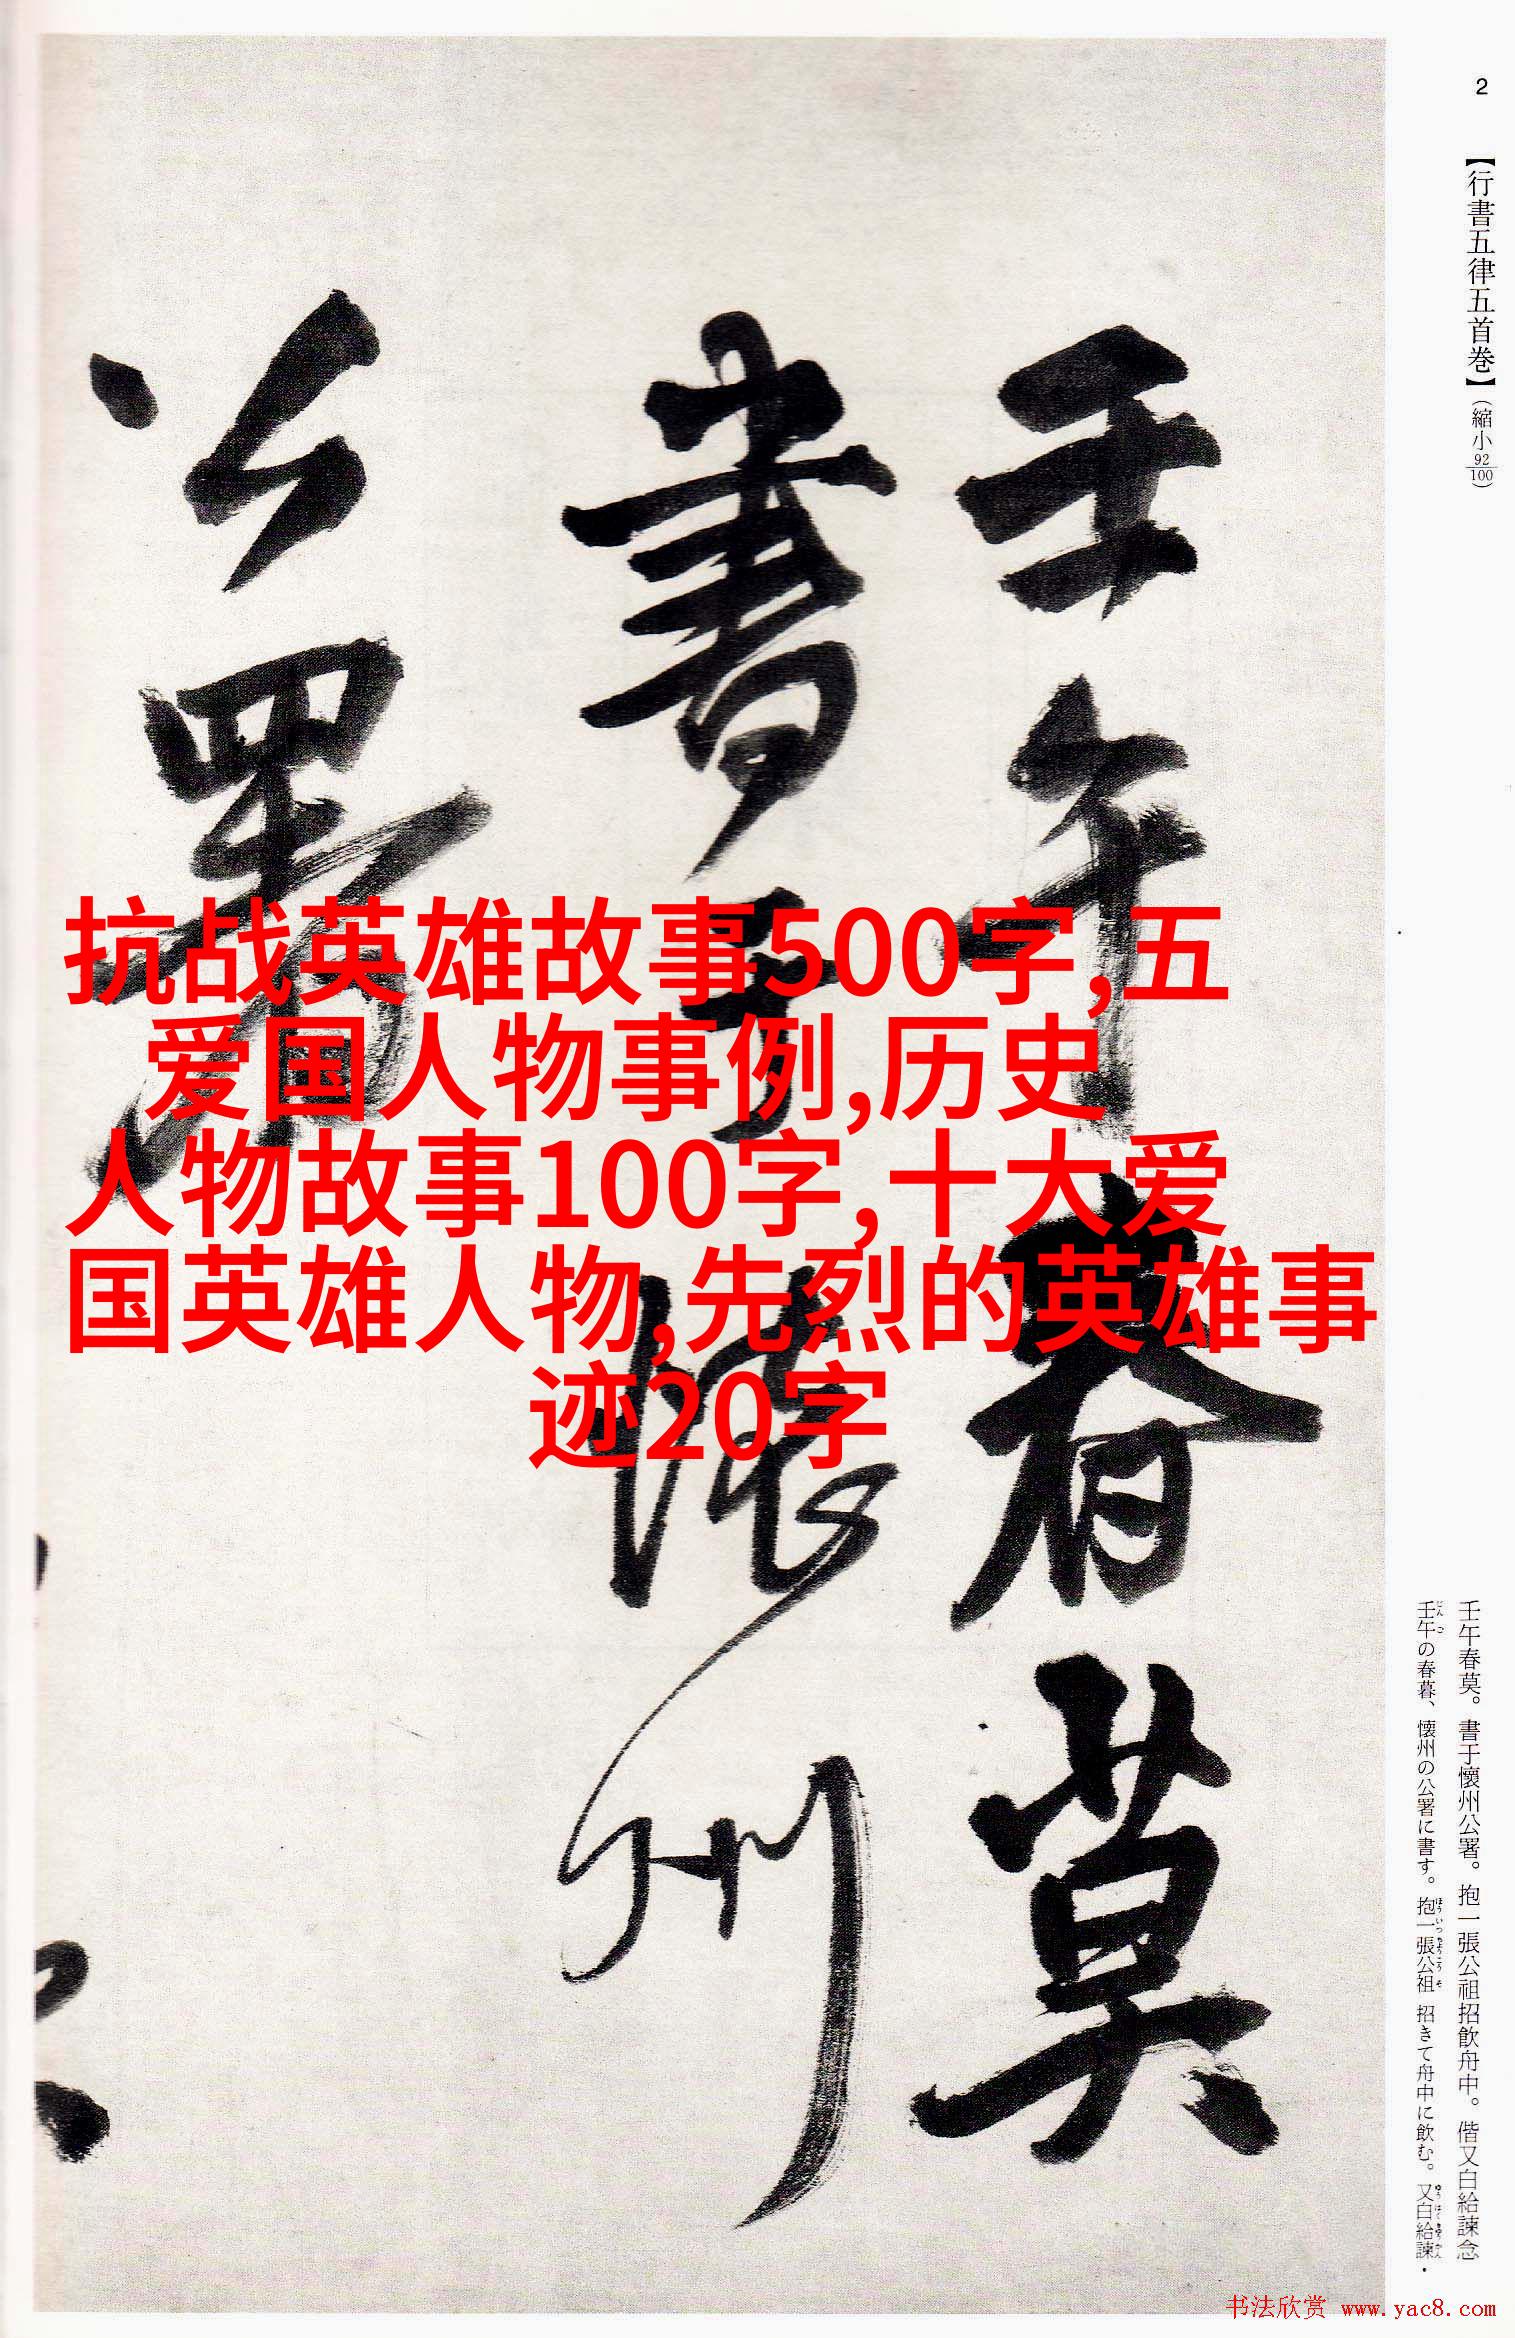 2
【行書五律五首巻】(縮小92/100)
壬午春莫
書于懷州
公署
抗战英雄故事500字,五
爱国人物事例,历史
人物故事100字,十大爱
国英雄人物,先烈的英雄事
迹20字
壬午春莫。書于懷州公署。抱一張公祖招飲舟中。偕又白給諫念
壬午の春暮、懐州の公署に書す。抱一張公祖 招きて舟中に飲む。又白給諫・
书法欣赏 www.yac8.com